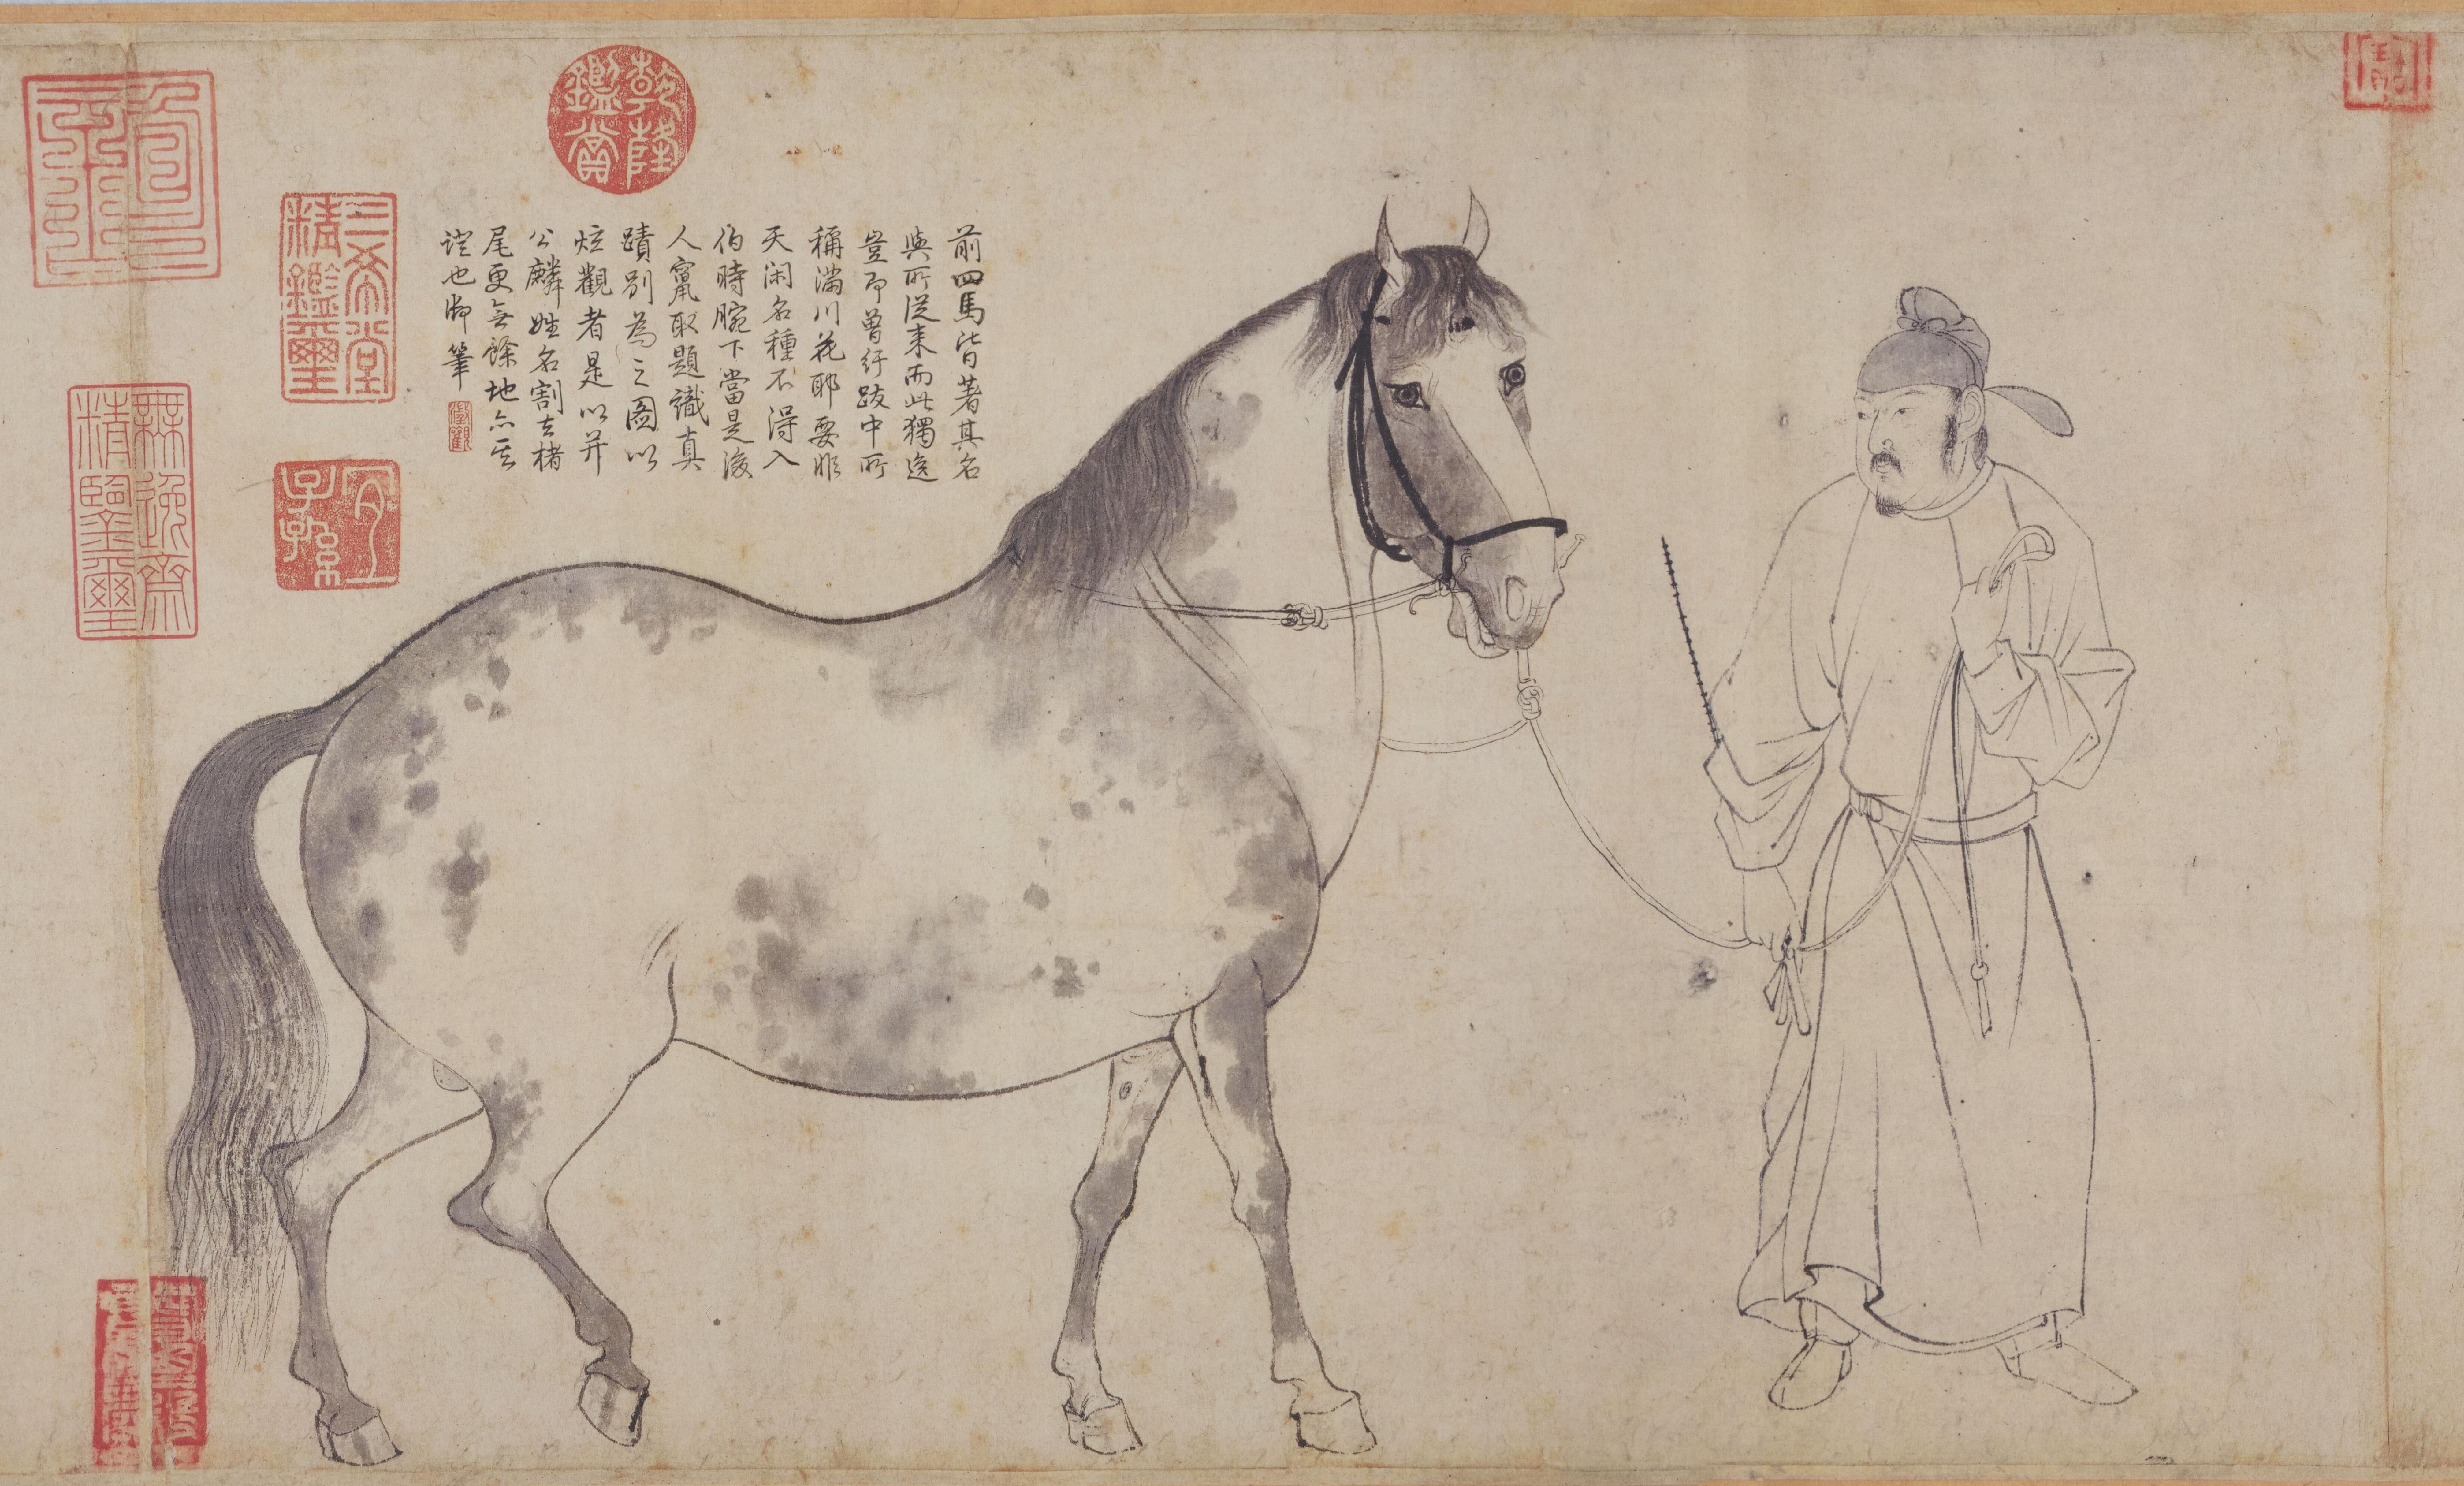 前四馬皆著其名
與所從来而此獨逸
豈即曾紆跋中所
稱滿川花耶要非
天闲名種不得入
伯時腕下當是後
人竄取題識真
蹟別為之圖以
炫觀者是以并
公麟姓名割去楮
尾更無餘地亦其
證也御筆
乾隆鑑賞
三希堂精鑑璽
宜子孫
無逸齋精鑒璽